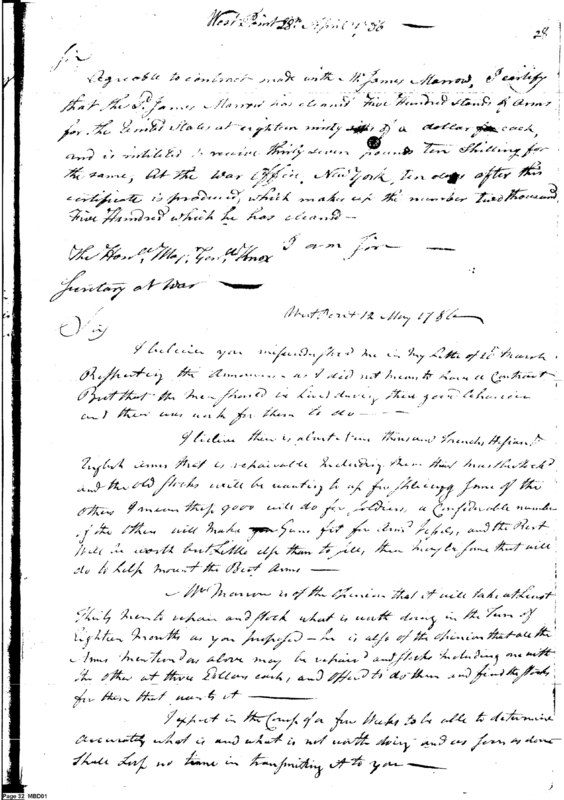 West Point 28th April 1786 —
28
Sir
Agreable to contract made with Mr James Marrow, I certify
that the Sd James Marrow has cleaned Five Hundred stands of arms
for the United States at eighteen ninty of a dollar each,
and is intitled to receive thirty seven pounds ten Shilling for
the same, at the War Office, New York, ten days after this
certificate is produced, which makes up the number two thousand
Five Hundred which he has cleaned —
I am Sir —
The Honble Maj. Genl Knox
Secretary at War —
West Point 12 May 1786
Sir
I believe you me in my Letter of March
Respecting the as I did not mean to have a Contract
But that the men should be hired during there good behaviour
and there was work for them to do —
I believe there is about thousand French Hesian &
English Arms that is repairable Including them that
and the old stocks will be wanting to up for splicing some of the
others I mean that 9000 will do for Soldiers, a Considerable number
of the others will make Guns fit for Armd and the Rest
will be worth but Little else than to sell, there may be some that will
do to help mount the Best Arms —
Mr Marrow is of the opinion that it will take at Least
Thirty men to repair and stock what is worth doing in the Turn of
Eighteen Months as you proposed — he is also of the opinion that all the
Arms mentiond as above may be repaird and stocks Including one with
the other at three Dollars each, and offerd to do them and find the stocks
for them that wants it —
I expect in the Comp of a few weeks to be able to determine
accurately what is and what is not worth doing and as soon as done
Shall Loss no time in transmitting it to you —
Page 32 MBD01